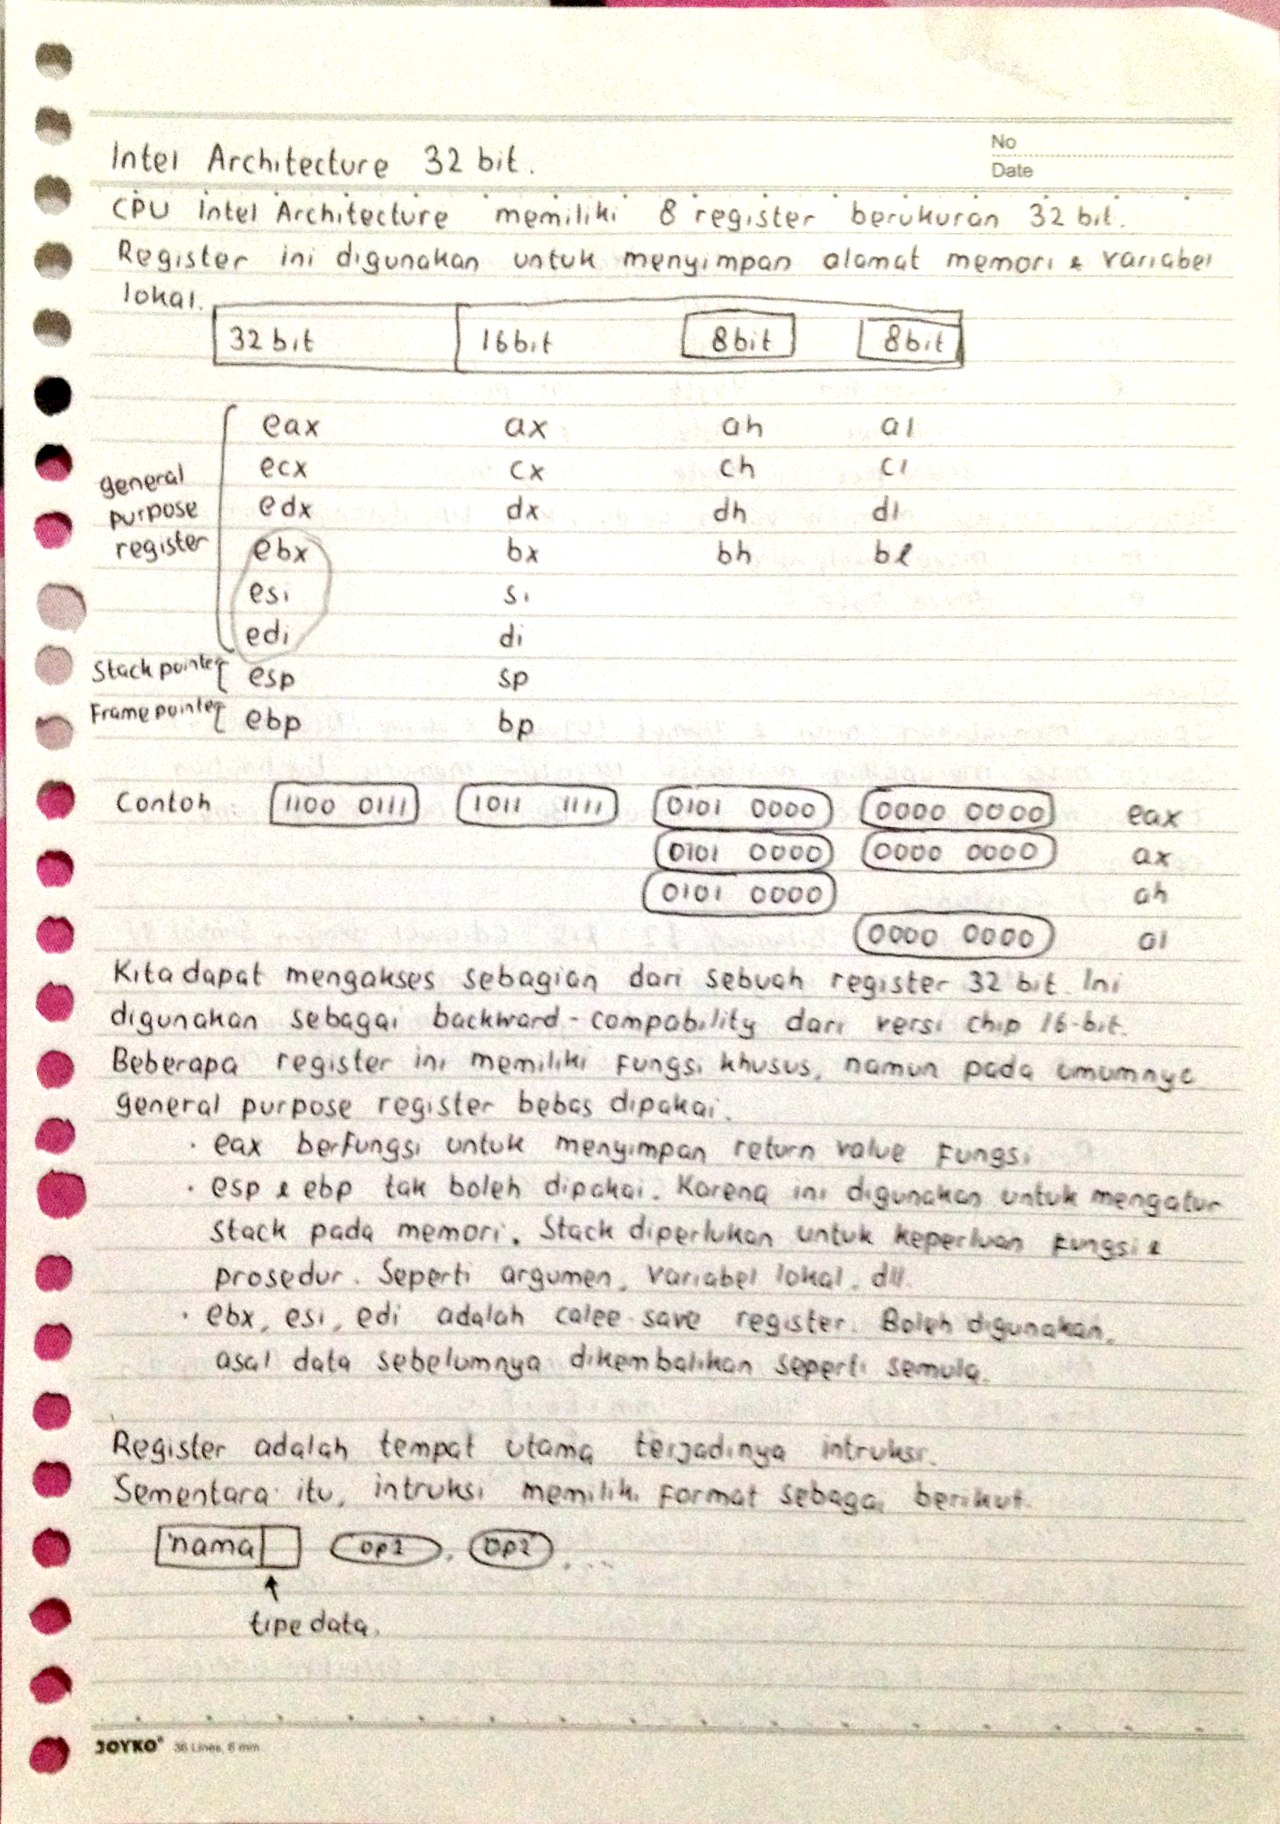 No
Date
Intel Architecture 32 bit.
CPU Intel Architecture memiliki 8 register berukuran 32 bit.
Register ini digunakan untuk menyimpan alamat memori & variabel
lokal.
32 bit 16 bit 8 bit 8 bit
eax ax ah al
ecx cx ch cl
edx dx dh dl
ebx bx bh bl
esi si
edi di
esp sp
ebp bp
general
purpose
register
Stack pointer
Frame pointer
Contoh 1100 0111 1011 1111 0101 0000 0000 0000 eax
0101 0000 0000 0000 ax
0101 0000 ah
0000 0000 al
Kita dapat mengakses sebagian dari sebuah register 32 bit. Ini
digunakan sebagai backward-compability dari versi chip 16-bit.
Beberapa register ini memiliki fungsi khusus, namun pada umumnya
general purpose register bebas dipakai.
· eax berfungsi untuk menyimpan return value fungsi
· esp & ebp tak boleh dipakai. Karena ini digunakan untuk mengatur
stack pada memori. Stack diperlukan untuk keperluan fungsi &
prosedur. Seperti argumen, variabel lokal, dll.
· ebx, esi, edi adalah calee-save register. Boleh digunakan,
asal data sebelumnya dikembalikan seperti semula.
Register adalah tempat utama terjadinya intruksi.
Sementara itu, intruksi memiliki format sebagai berikut.
nama op1, op2, ...
tipe data.
JOYKO® 36 Lines, 8 mm